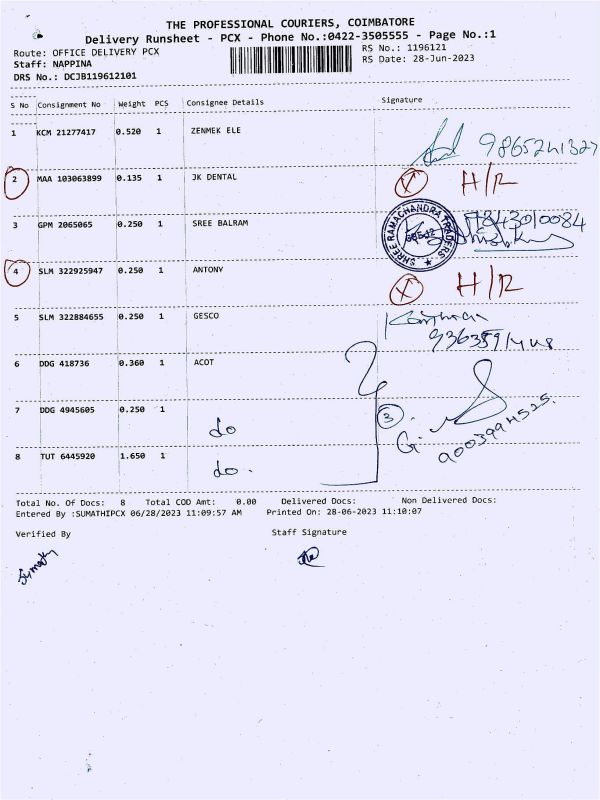 THE PROFESSIONAL COURIERS, COIMBATORE
Delivery Runsheet - PCX - Phone No.:0422-3505555 - Page No.:1
Route: OFFICE DELIVERY PCX
RS No.: 1196121
Staff: NAPPINA
RS Date: 28-Jun-2023
DRS No.: DCJB119612101
S No Consignment No Weight PCS Consignee Details Signature
1 KCM 21277417 0.520 1 ZENMEK ELE
2 MAA 103063899 0.135 1 JK DENTAL H/R
3 GPM 2065065 0.250 1 SREE BALRAM
SHREE RAMACHANDRA TRADERS
4 SLM 322925947 0.250 1 ANTONY H/R
5 SLM 322884655 0.250 1 GESCO
6 DDG 418736 0.360 1 ACOT
7 DDG 4945605 0.250 1 do 3
8 TUT 6445920 1.650 1 do.
Total No. Of Docs: 8 Total COD Amt: 0.00 Delivered Docs: Non Delivered Docs:
Entered By :SUMATHIPCX 06/28/2023 11:09:57 AM Printed On: 28-06-2023 11:10:07
Verified By Staff Signature
Sumathy